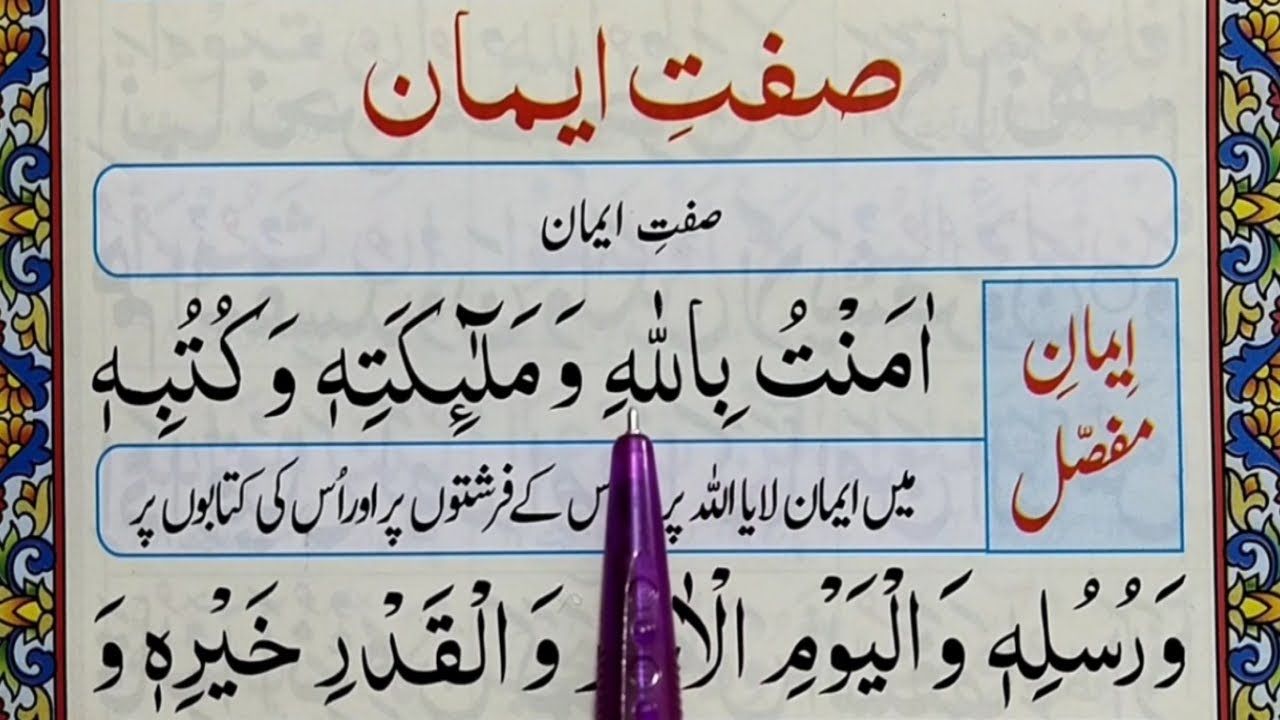 صفتِ ایمان
صفتِ ایمان
اِیمانِ مفصّل
اٰمَنْتُ بِاللّٰهِ وَ مَلٰٓئِكَتِهٖ وَ كُتُبِهٖ
میں ایمان لایا اللہ پر کے فرشتوں پر اور اُس کی کتابوں پر
وَ رُسُلِهٖ وَ الْیَوْمِ وَ الْقَدْرِ خَیْرِهٖ وَ